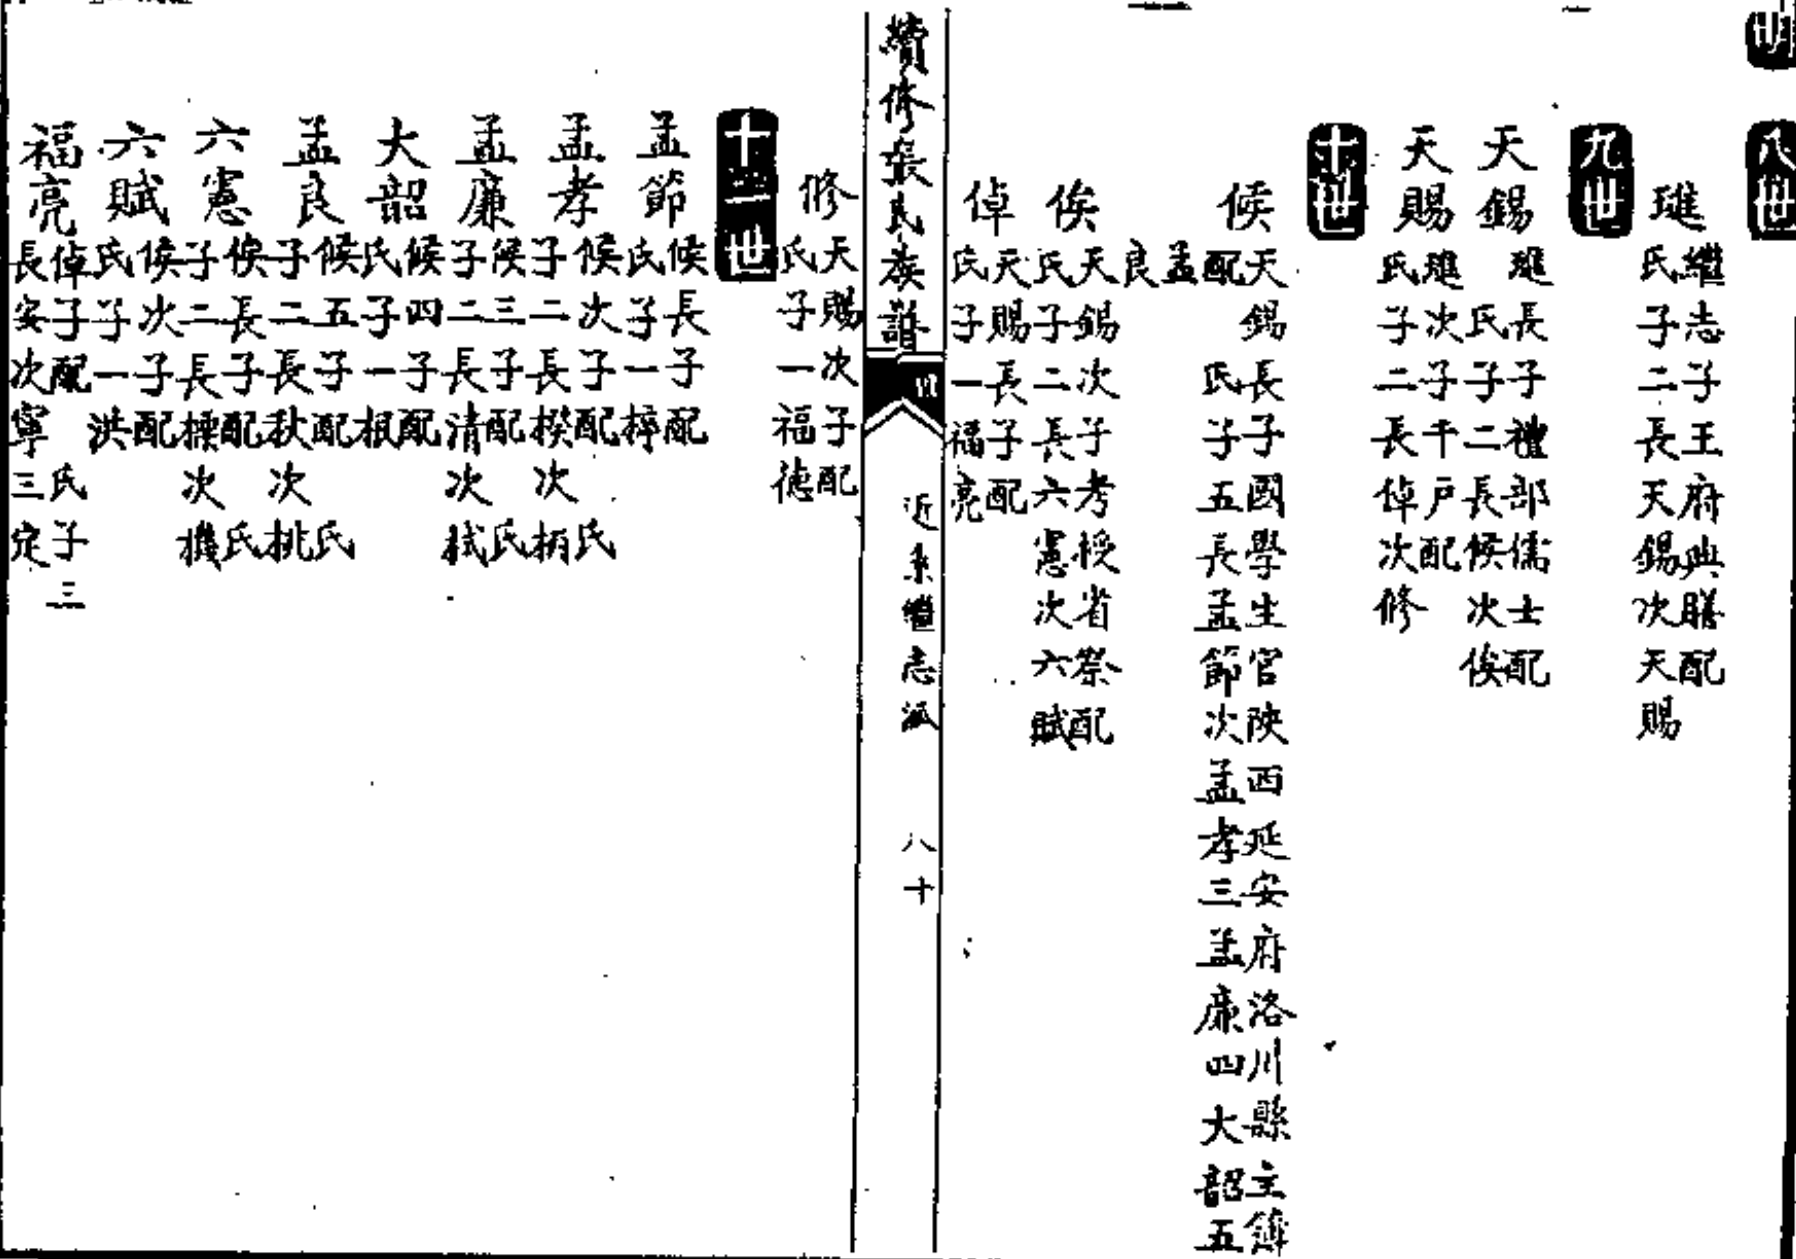 明
八世
璡
繼志子王府典膳配
氏子二長天錫次天賜
九世
天錫
璡長子禮部儒士配
氏子二長候次俟
天賜
璡次子千戶配
氏子二長倬次修
十世
候
天錫長子國學生官陝西延安府洛川縣主簿
配　氏子五長孟節次孟孝三孟廉四大韶五
孟良
俟
天錫次子考授省祭配
氏子二長六憲次六賦
倬
天賜長子配
氏子一福亮
續修張氏族譜
近系繼志派
八十
修
天賜次子配
氏子一福德
十一世
孟節
候長子配
氏子一梓
孟孝
候次子配　氏
子二長楑次柄
孟廉
候三子配　氏
子二長清次栻
大韶
候四子配
氏子一根
孟良
候五子配　氏
子二長秋次桃
六憲
俟長子配　氏
子二長㯶次機
六賦
俟次子配
氏子一洪
福亮
倬子配　氏子三
長安次寧三定